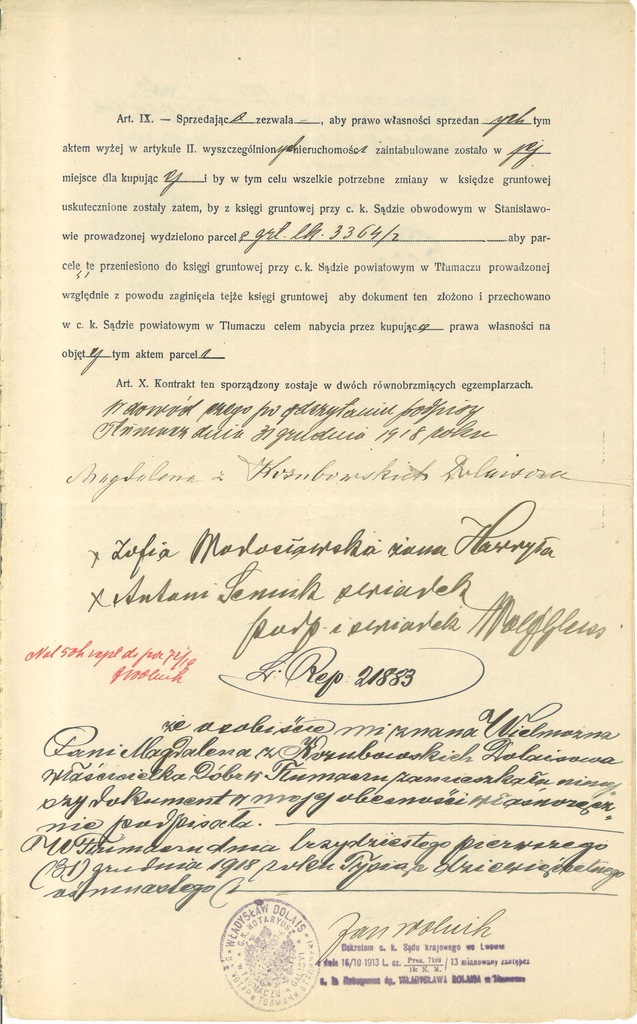 Art. IX. — Sprzedając a zezwala —, aby prawo własności sprzedan ych tym
aktem wyżej w artykule II. wyszczególnion ych nieruchomości zaintabulowane zostało w jej
miejsce dla kupując ej — i by w tym celu wszelkie potrzebne zmiany w księdze gruntowej
uskutecznione zostały zatem, by z księgi gruntowej przy c. k. Sądzie obwodowym w Stanisławo-
wie prowadzonej wydzielono parcel ę grt. lk. 3364/2 aby par-
celę tę przeniesiono do księgi gruntowej przy c. k. Sądzie powiatowym w Tłumaczu prowadzonej
względnie z powodu zaginięcia tejże księgi gruntowej aby dokument ten złożono i przechowano
w c. k. Sądzie powiatowym w Tłumaczu celem nabycia przez kupując ą prawa własności na
objęt ej tym aktem parcel i
Art. X. Kontrakt ten sporządzony zostaje w dwóch równobrzmiących egzemplarzach.
W dowód czego po odczytaniu podpisy
Tłumacz dnia 31 grudnia 1918 roku
Magdalena z Kozubowskich Dolaisowa
x Zofia żona Hawryła
x Antoni Semnik świadek
podp. i świadek
Nal 50h
Jwolnik
L: Rep: 21883
że osobiście mi znana Wielmożna
Pani Magdalena z Kozubowskich Dolaisowa
właścicielka Dóbr w Tłumaczu zamieszkała niniej-
szy dokument w mojej obecności własnoręcz-
nie podpisała.
W Tłumaczu dnia trzydziestego pierwszego
(31) grudnia 1918 roku Tysiąc dziewięćsetnego
ośmnastego
Jan Wolnik
WŁADYSŁAW DOLAIS
C. K. NOTARYUSZ
W TŁUMACZU
Dekretem c. k. Sądu krajowego we Lwowie
z dnia 16/10 1913 L. cz. Praes. 7196 / 13 mianowany zastępca
18 N. M.
c. k. Notaryusza śp. WŁADYSŁAWA DOLAISA w Tłumaczu